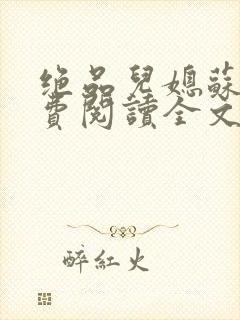 绝品兒媳蘇
費閱讀全文
醉紅火